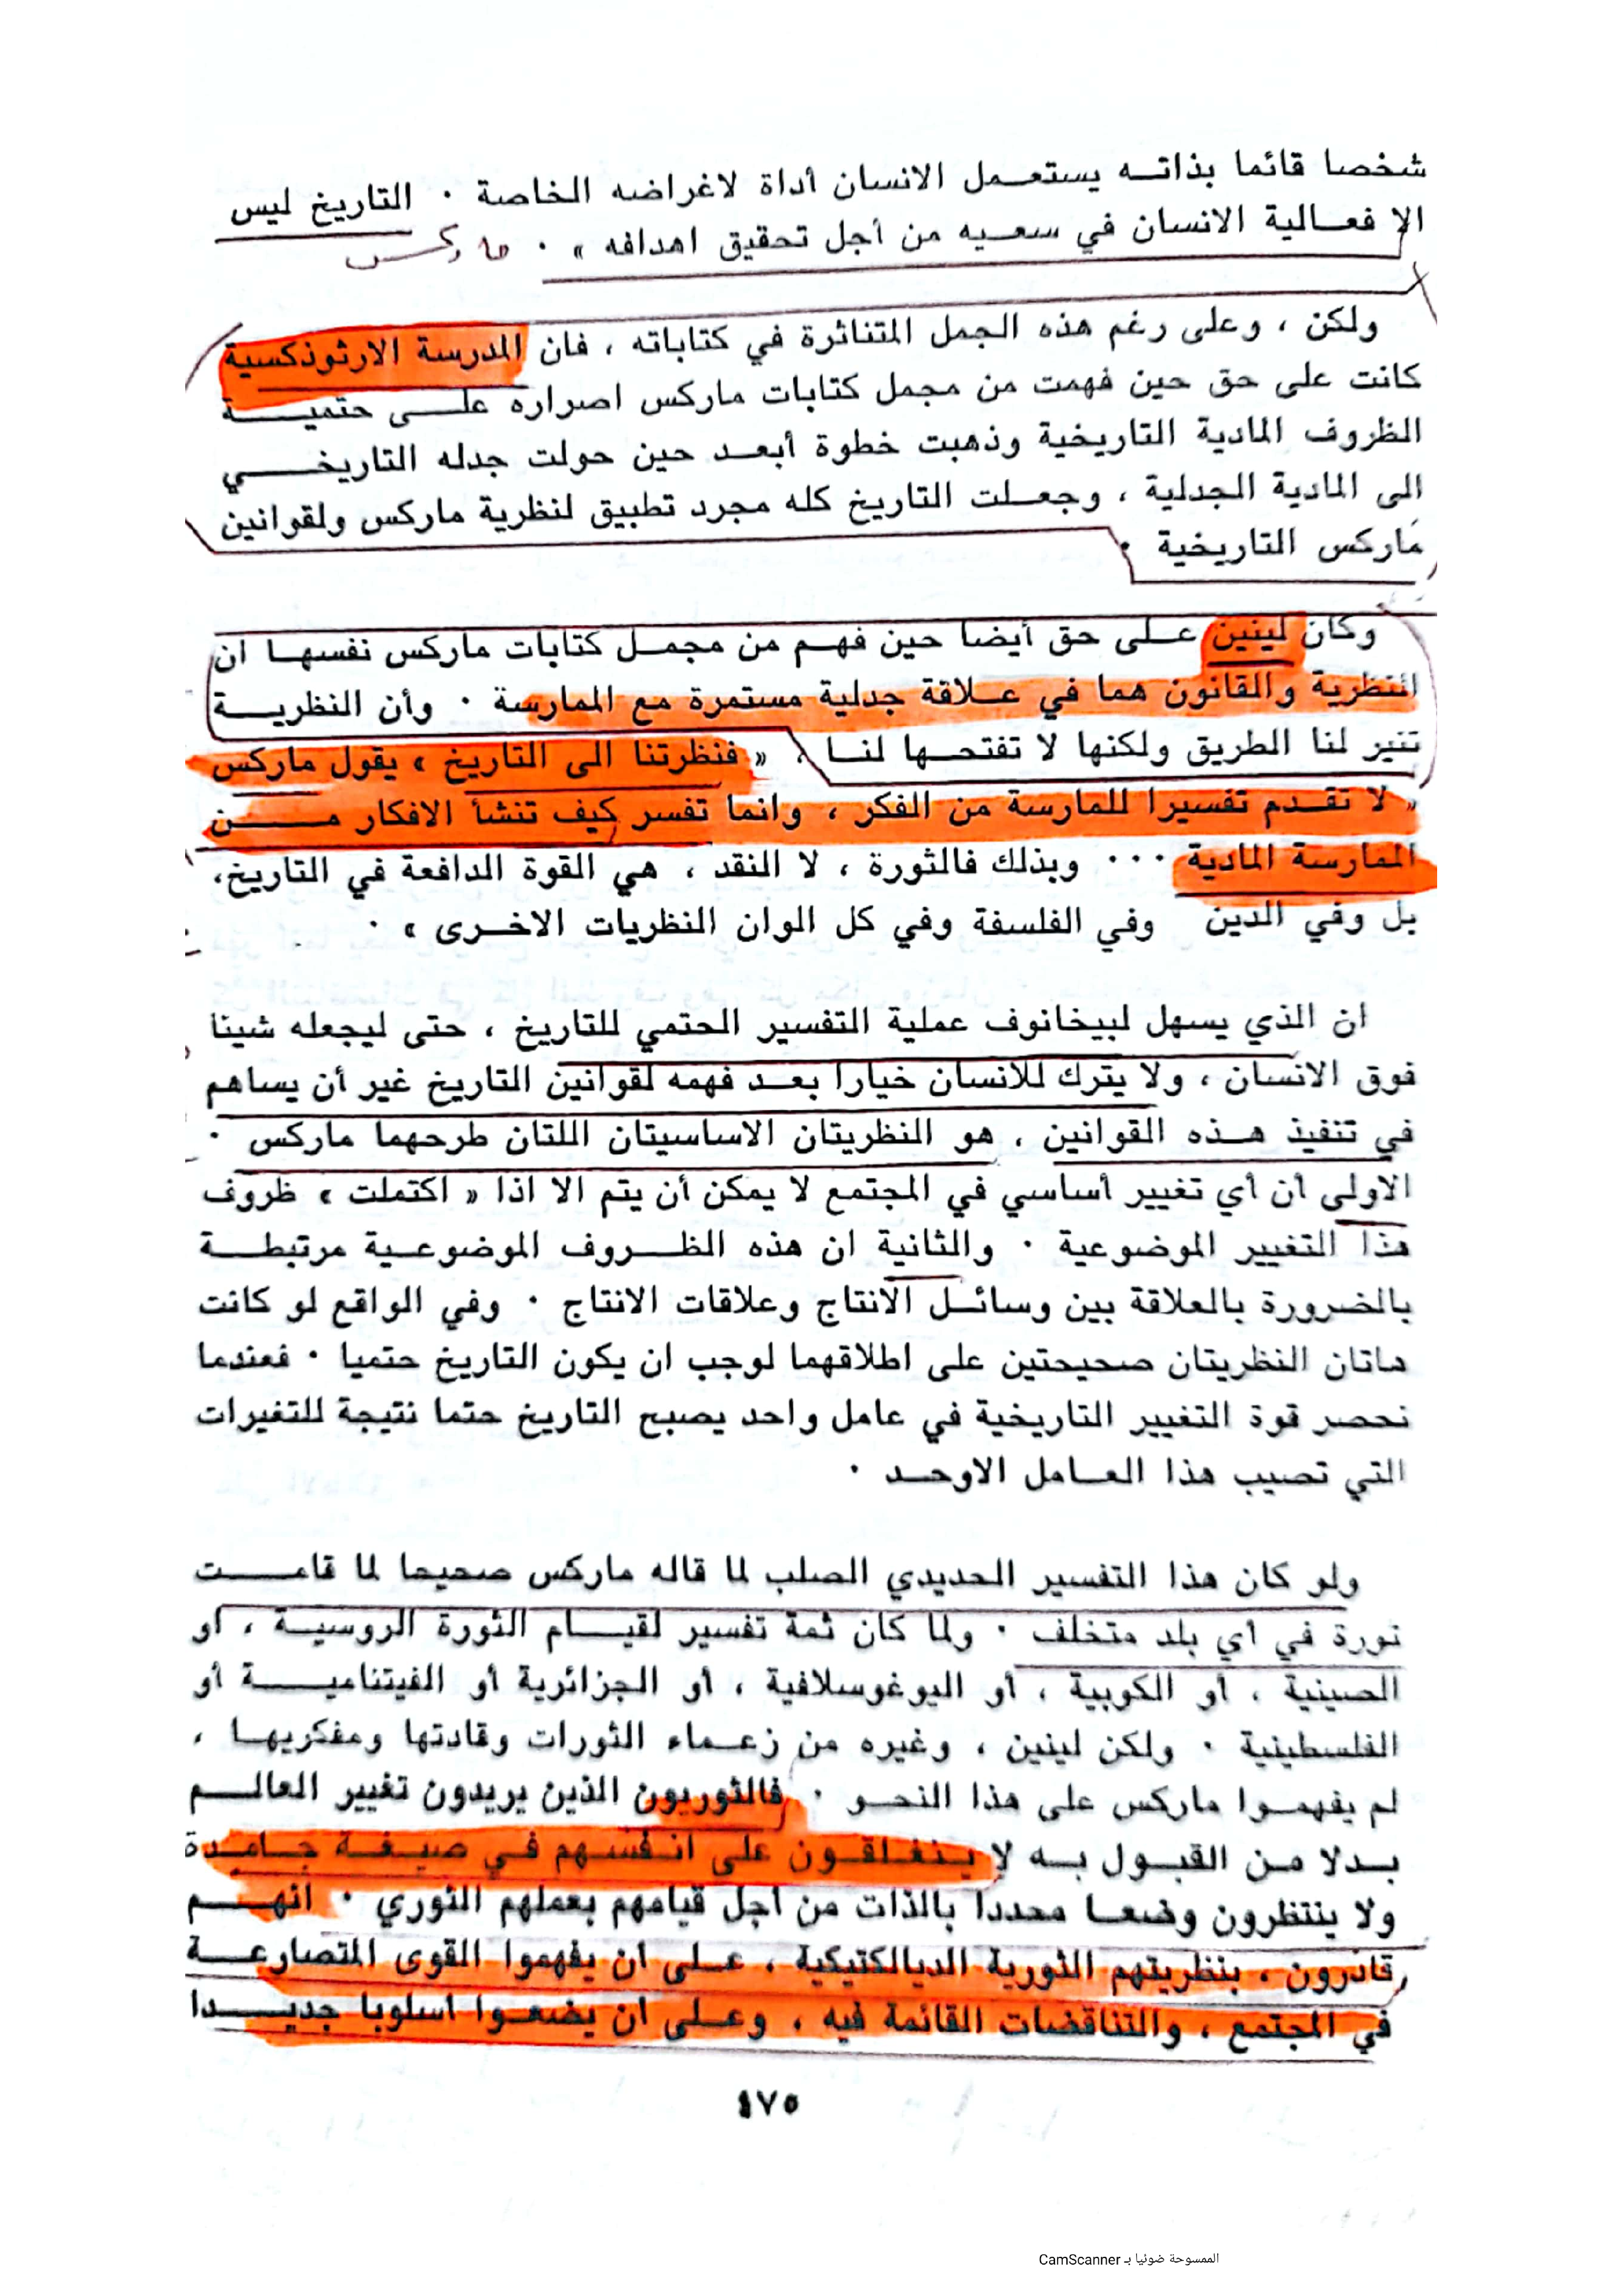 شخصا قائما بذاتـه يستعمـل الانسان أداة لاغراضه الخاصة · التاريخ ليس
الا فعـالية الانسان في سعـيه من أجل تحقيق اهدافه » · ماركس
ولكن ، وعلى رغم هذه الجمل المتناثرة في كتاباته ، فان المدرسة الارثوذكسية
كانت على حق حين فهمت من مجمل كتابات ماركس اصراره علـى حتميـة
الظروف المادية التاريخية وذهبت خطوة أبعـد حين حولت جدله التاريخـي
الى المادية الجدلية ، وجعـلت التاريخ كله مجرد تطبيق لنظرية ماركس ولقوانين
ماركس التاريخية ·
وكان لينين عـلى حق أيضا حين فهـم من مجمـل كتابات ماركس نفسهـا ان
النظرية والقانون هما في عـلاقة جدلية مستمرة مع الممارسة · وأن النظريـة
تنير لنا الطريق ولكنها لا تفتحـها لنـا ، « فنظرتنا الى التاريخ » يقول ماركس
« لا تقـدم تفسيرا للمارسة من الفكر ، وانما تفسر كيف تنشأ الافكار مـن
الممارسة المادية ··· وبذلك فالثورة ، لا النقد ، هي القوة الدافعة في التاريخ،
بل وفي الدين وفي الفلسفة وفي كل الوان النظريات الاخـرى » ·
ان الذي يسهل لبيخانوف عملية التفسير الحتمي للتاريخ ، حتى ليجعله شيئا
فوق الانسان ، ولا يترك للانسان خيارا بعـد فهمه لقوانين التاريخ غير أن يساهم
في تنفيذ هـذه القوانين ، هو النظريتان الاساسيتان اللتان طرحهما ماركس ·
الاولى ان أي تغيير أساسي في المجتمع لا يمكن أن يتم الا اذا « اكتملت » ظروف
هذا التغيير الموضوعية · والثانية ان هذه الظـروف الموضوعـية مرتبطـة
بالضرورة بالعلاقة بين وسائـل الانتاج وعلاقات الانتاج · وفي الواقع لو كانت
هاتان النظريتان صحيحتين على اطلاقهما لوجب ان يكون التاريخ حتميا · فعندما
نحصر قوة التغيير التاريخية في عامل واحد يصبح التاريخ حتما نتيجة للتغيرات
التي تصيب هذا العـامل الاوحـد ·
ولو كان هذا التفسير الحديدي الصلب لما قاله ماركس صحيحا لما قامـت
ثورة في أي بلد متخلف · ولما كان ثمة تفسير لقيـام الثورة الروسيـة ، أو
الصينية ، أو الكوبية ، أو اليوغوسلافية ، أو الجزائرية أو الفيتناميـة أو
الفلسطينية · ولكن لينين ، وغيره من زعـماء الثورات وقادتها ومفكريهـا ،
لم يفهمـوا ماركس على هذا النحـو · فالثوريون الذين يريدون تغيير العالـم
بـدلا مـن القبـول بـه لا ينغـلقـون على انـفسـهم فـي صيـغـة جـامـدة
ولا ينتظرون وضعـا محددا بالذات من أجل قيامهم بعملهم الثوري · انهـم
قادرون ، بنظريتهم الثورية الديالكتيكية ، عـلى ان يفهموا القوى المتصارعـة
في المجتمع ، والتناقضات القائمة فيه ، وعـلى ان يضعـوا اسلوبا جديـدا
٤٧٥
الممسوحة ضوئيا بـ CamScanner